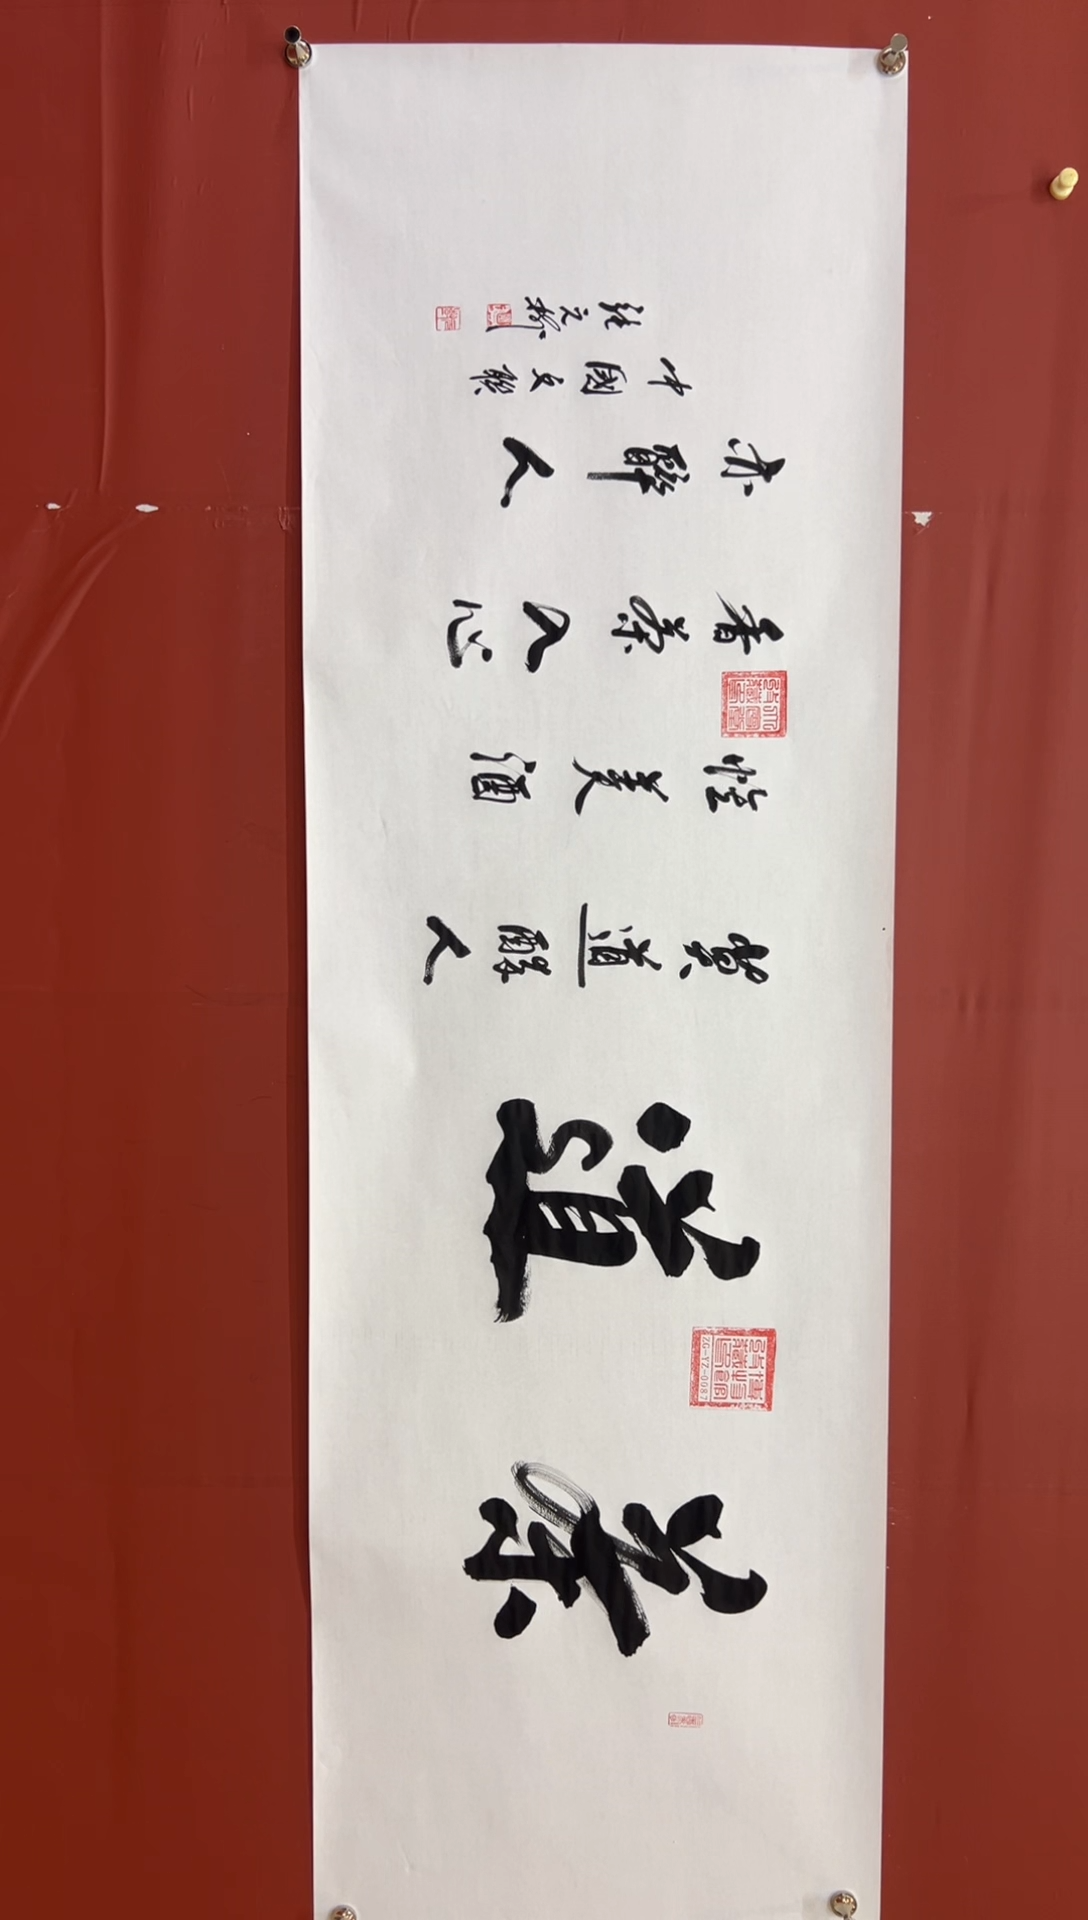 茶道
莫道醉人
惟美酒
香茶入心
亦醉人
中國文聯
ZG-YZ-0087